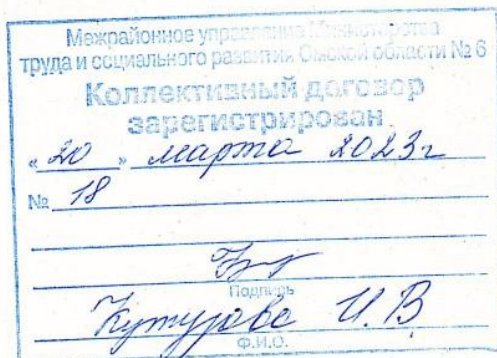 Межрайонное управление Министерства
труда и социального развития Омской области № 6
Коллективный договор
зарегистрирован
« 20 » марта 2023г
№ 18
Подпись
И. В
Ф.И.О.